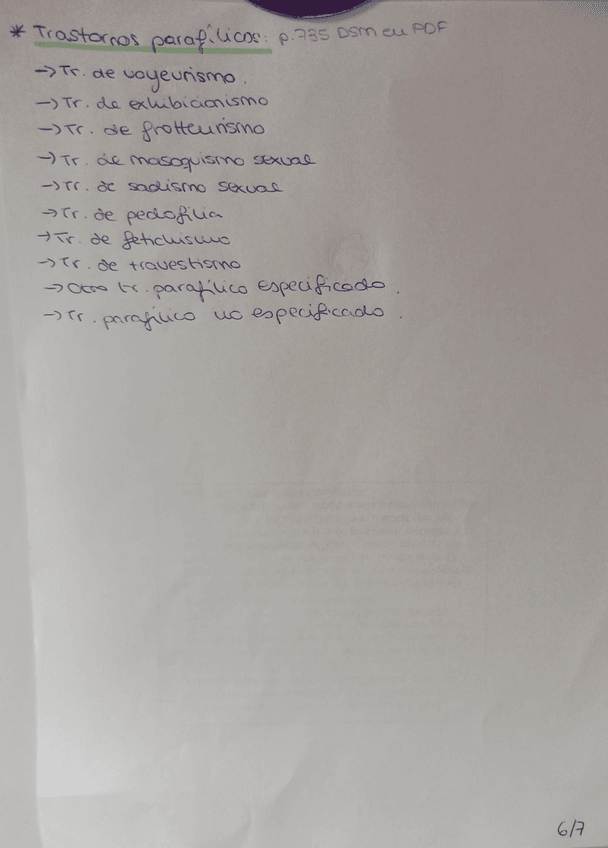 * Trastornos parafílicos: p.735 DSM en PDF
→ Tr. de voyeurismo.
→ Tr. de exhibicionismo
→ Tr. de frotteurismo
→ Tr. de masoquismo sexual
→ Tr. de sadismo sexual
→ Tr. de pedofilia
→ Tr. de fetichismo
→ Tr. de travestismo
→ Otro tr. parafílico especificado.
→ Tr. parafílico no especificado.
6/7